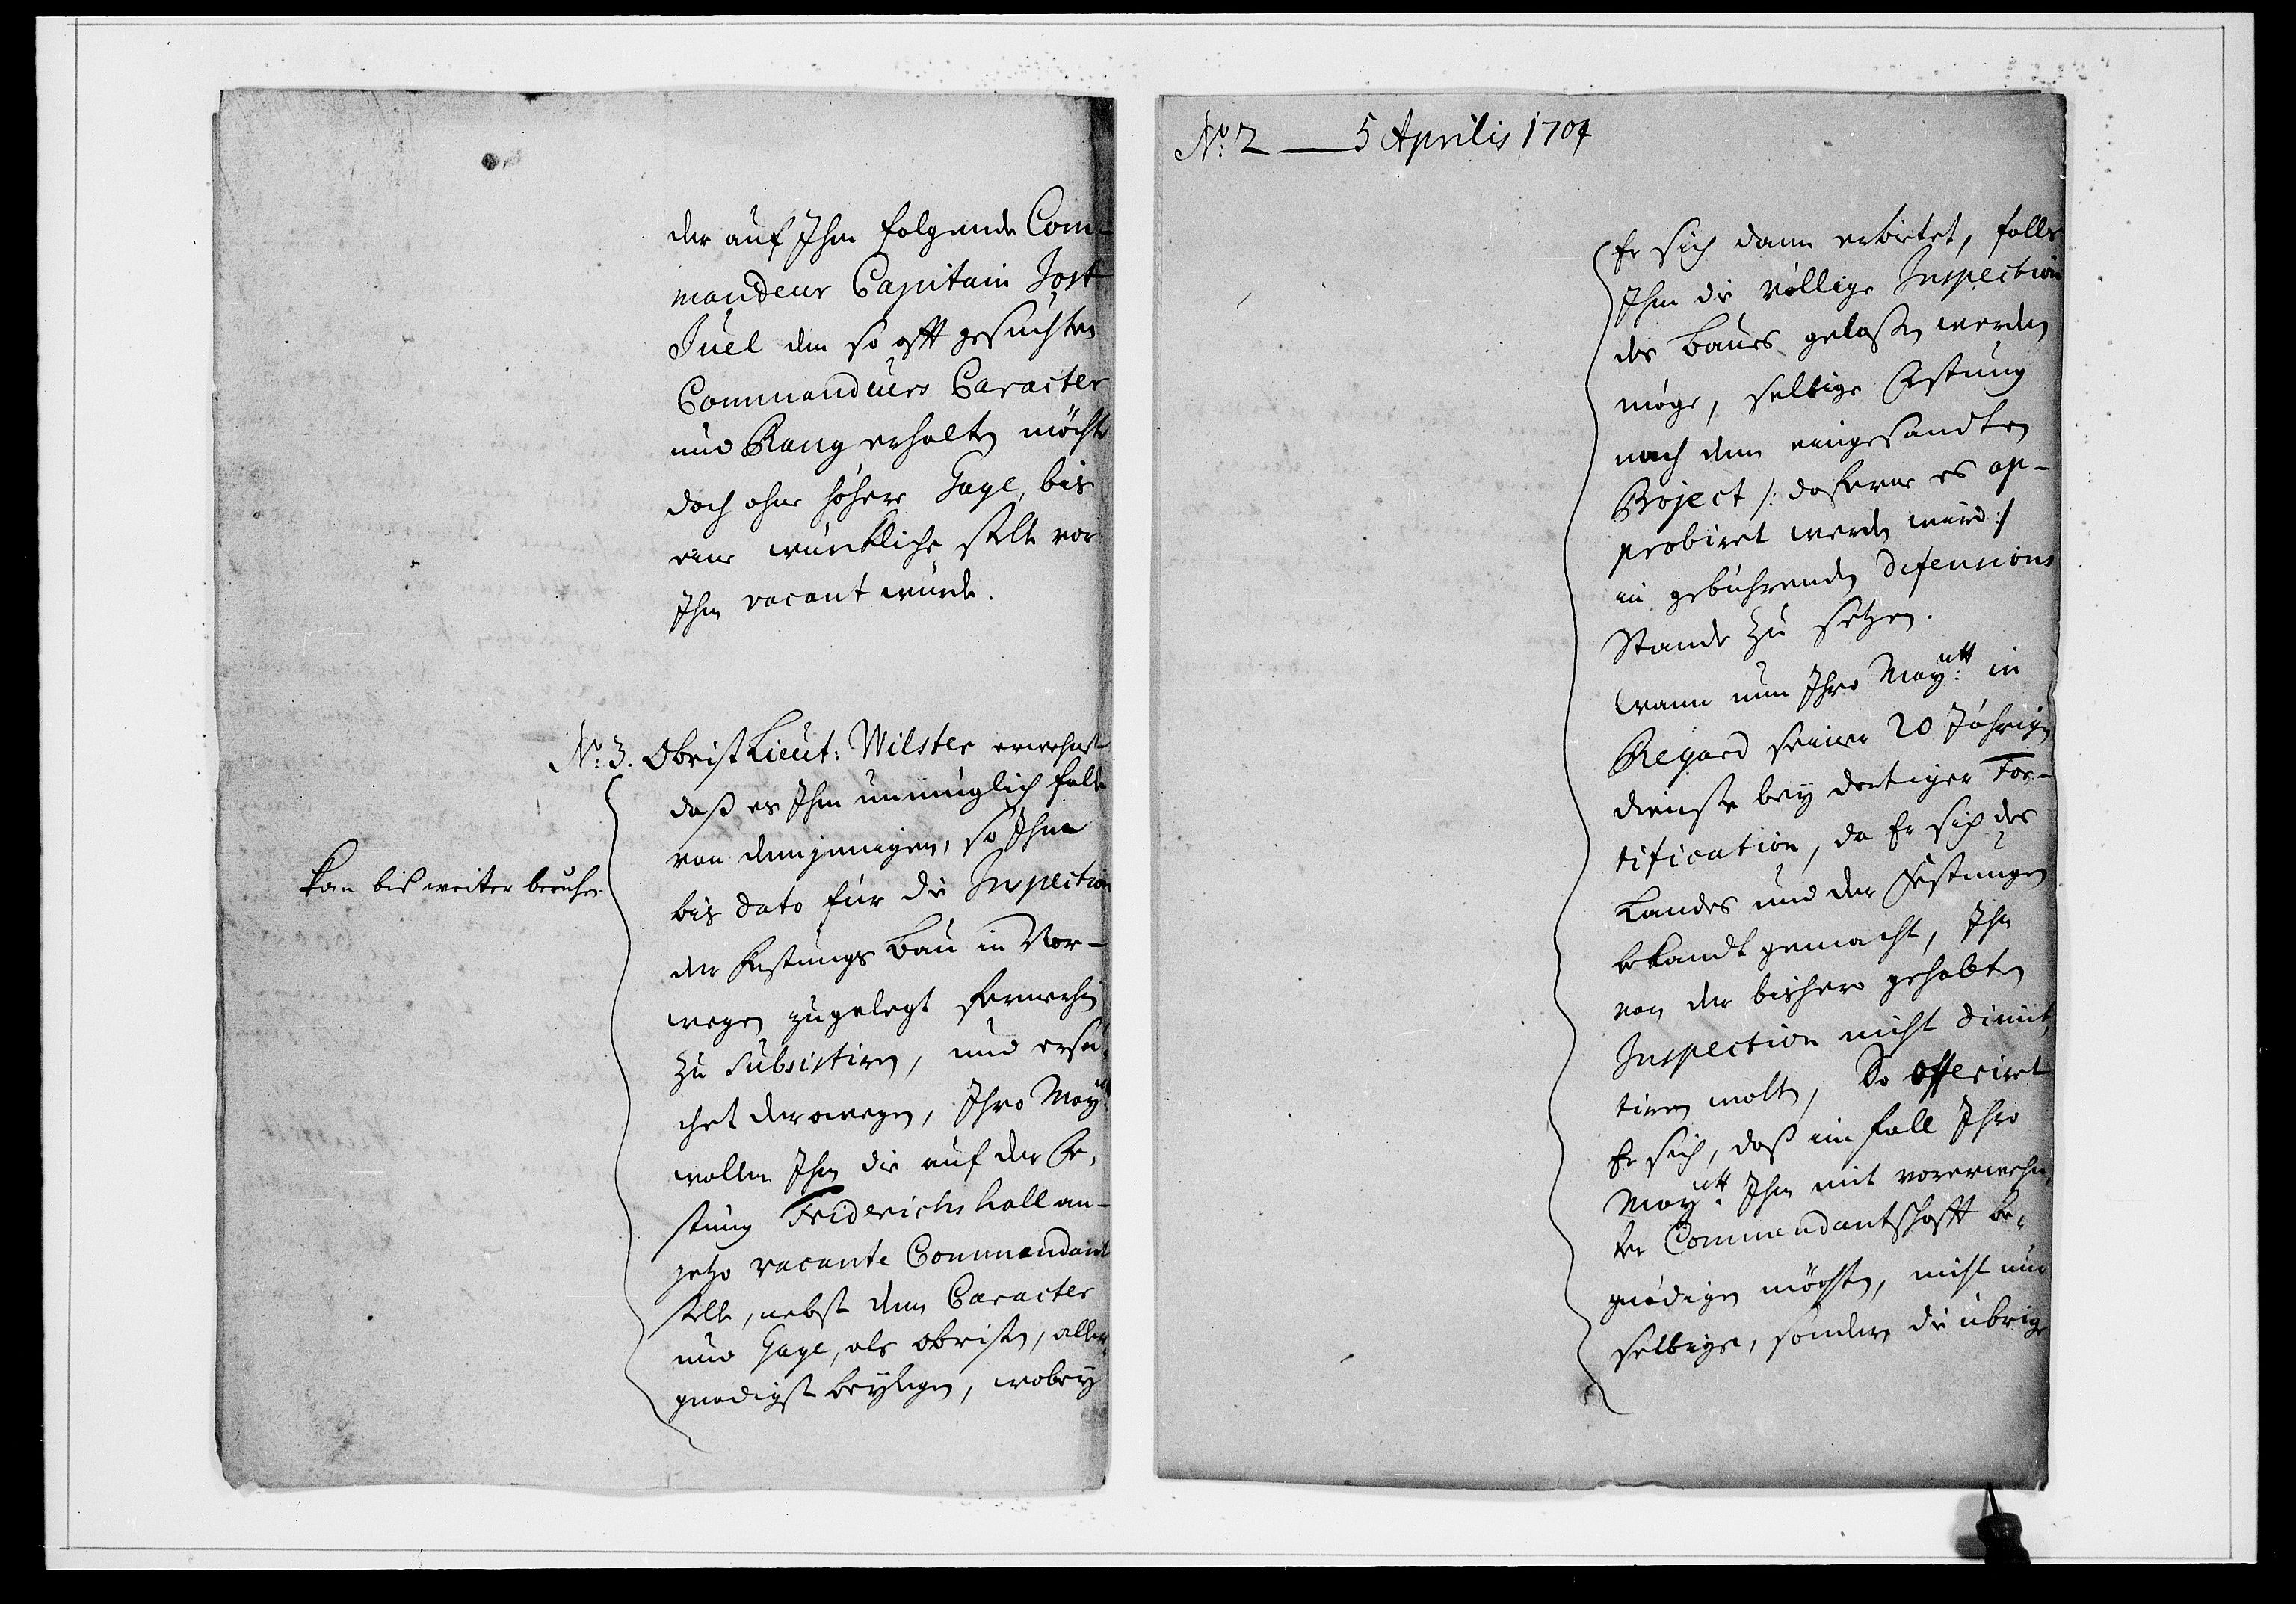 der auf Ihm folgende Com-
mandeur Capitain Jost
Juel den so offt gesuchten
Commandeurs Caracter
und Rang erhalten möchte
doch ohne höhere Gage, bis
eine würckliche stelle vor
Ihm vacant würde.
No: 3. Obrist Lieut: Wilster erwehnet
daß es Ihm unmüglich falle
von demjenigen, so Ihm
bis dato für die Inspection
der Festungs Bau in Nor-
wegen zugelegt fernerhin
zu subsistiren, und ersu-
chet derowegen, Ihro Maytt:
wollen Ihm die auf der Ve-
stung Friderichshall an-
jetzo vacante Commandant
stelle, nebst dem Caracter
und Gage, als Obrister, aller-
gnädigst beylegen, wobey
Kan bis weiter beruhen
No: 2 5 Aprilis 1704
Er sich dann erbietet, falls
Ihm die völlige Inspection
des Baues gelaßen werden
möge, selbige Vestung
nach dem eingesandten
Project /: dafern es ap-
probiret werden wird :/
in gebührenden Defensions
Stande zu setzen.
Wann nun Ihro Maytt: in
Regard seiner 20 Jährigen
dienste bey dortiger For-
tification, da Er sich des
Landes und der Festungen
bekandt gemacht, Ihn
von der bishero gehabten
Inspection nicht dimit-
tiren wolte, So offeriret
Er sich, daß im fall Ihro
Maytt: Ihn mit vorerwehn-
ter Commendantschafft be-
gnädigen möchten, nicht nur
selbige, sondern die übrige